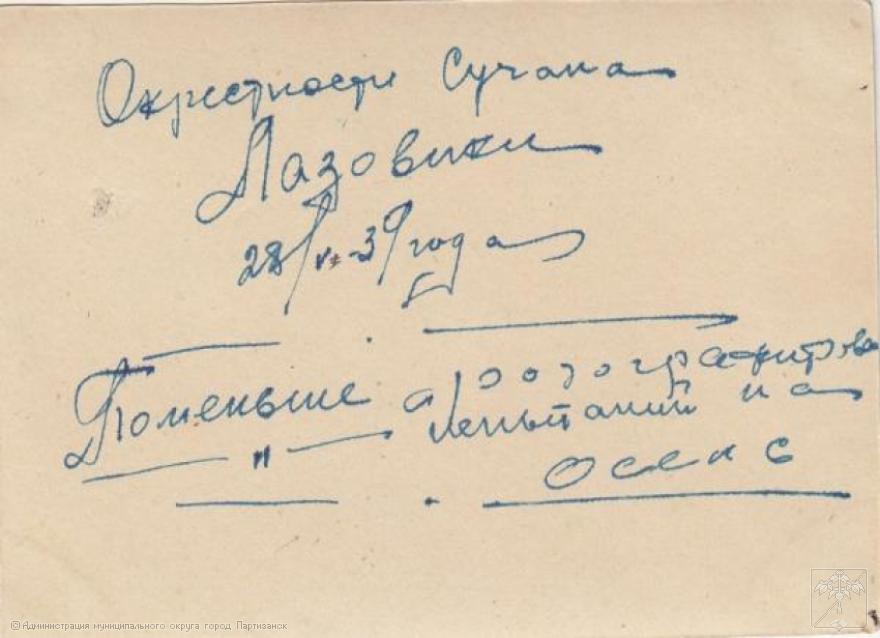 Окрестности Сучана
Лазовики
28/ 39 года
Поменьше фотографиров
на
осень
© Администрация муниципального округа город Партизанск